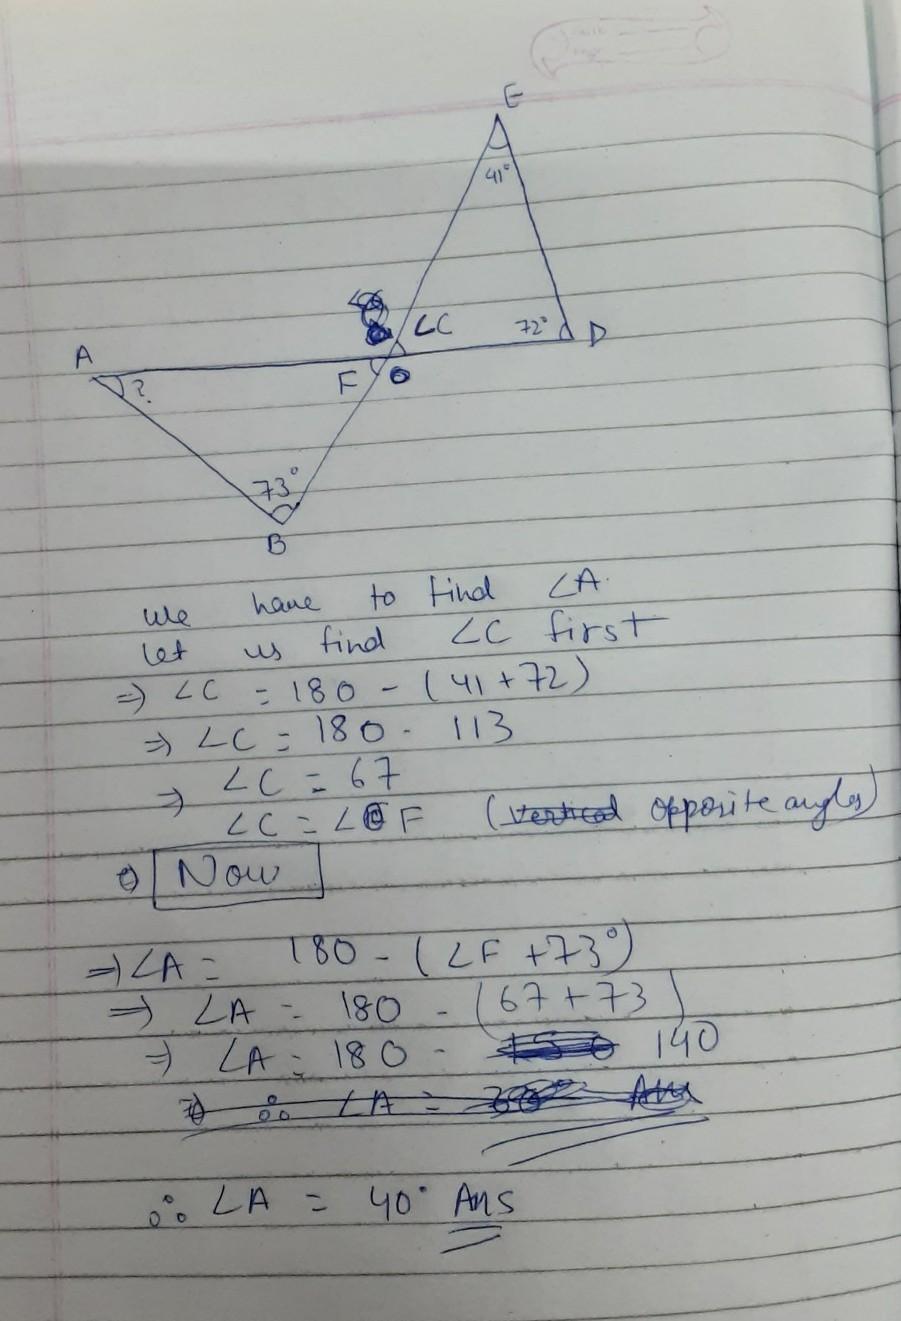 E
41°
∠C
72°
D
A
?
F
O
73°
B
We have to find ∠A.
Let us find ∠C first
⇒ ∠C = 180 - (41 + 72)
⇒ ∠C = 180 - 113
⇒ ∠C = 67
∠C = ∠F (vertical opposite angles)
Now
⇒ ∠A = 180 - (∠F + 73°)
⇒ ∠A = 180 - (67 + 73)
⇒ ∠A = 180 - 140
∴ ∠A = 40° Ans